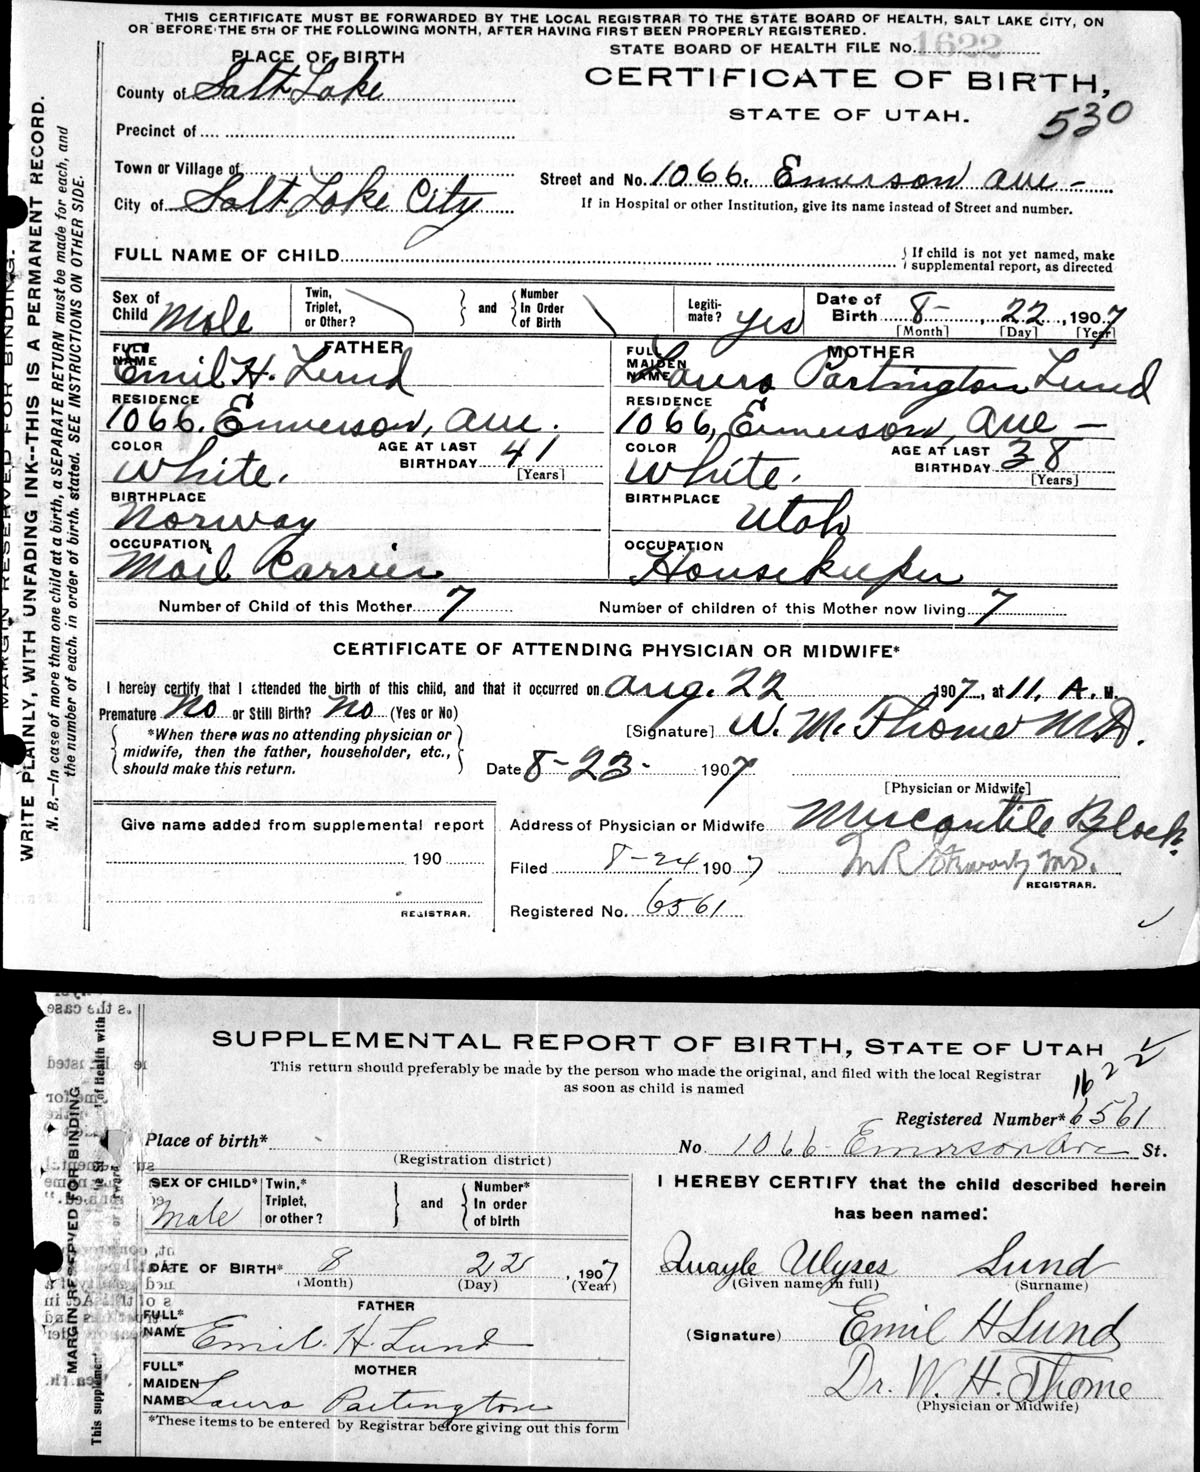 THIS CERTIFICATE MUST BE FORWARDED BY THE LOCAL REGISTRAR TO THE STATE BOARD OF HEALTH, SALT LAKE CITY, ON
OR BEFORE THE 5TH OF THE FOLLOWING MONTH, AFTER HAVING FIRST BEEN PROPERLY REGISTERED.
PLACE OF BIRTH
STATE BOARD OF HEALTH FILE No. 1622
County of Salt Lake
CERTIFICATE OF BIRTH,
STATE OF UTAH.
530
Precinct of
Town or Village of
Street and No. 1066. Emerson ave -
City of Salt Lake City
If in Hospital or other Institution, give its name instead of Street and number.
FULL NAME OF CHILD
{ If child is not yet named, make supplemental report, as directed
Sex of Child Male
Twin, Triplet, or Other? } and { Number In Order of Birth
Legitimate? yes
Date of Birth 8- , 22 , 1907
[Month] [Day] [Year]
FATHER
FULL NAME Emil H. Lund
MOTHER
FULL MAIDEN NAME Laura Partington Lund
RESIDENCE 1066. Emerson, ave.
RESIDENCE 1066, Emerson, ave -
COLOR White. AGE AT LAST BIRTHDAY 41 [Years]
COLOR White. AGE AT LAST BIRTHDAY 38 [Years]
BIRTHPLACE Norway
BIRTHPLACE Utah
OCCUPATION Mail Carrier
OCCUPATION Housekeeper
Number of Child of this Mother 7
Number of children of this Mother now living 7
CERTIFICATE OF ATTENDING PHYSICIAN OR MIDWIFE*
I hereby certify that I attended the birth of this child, and that it occurred on Aug. 22 1907, at 11. A. M.
Premature No or Still Birth? No (Yes or No)
[Signature] W. M. Thome M.D.
{ *When there was no attending physician or midwife, then the father, householder, etc., should make this return. }
Date 8-23- 1907
[Physician or Midwife]
Give name added from supplemental report
190
REGISTRAR.
Address of Physician or Midwife Mercantile Block.
Filed 8-24 1907
M.D.
REGISTRAR.
Registered No. 6561
MARGIN RESERVED FOR BINDING.
WRITE PLAINLY, WITH UNFADING INK--THIS IS A PERMANENT RECORD.
N. B.—In case of more than one child at a birth, a SEPARATE RETURN must be made for each, and
the number of each, in order of birth, stated. SEE INSTRUCTIONS ON OTHER SIDE.
SUPPLEMENTAL REPORT OF BIRTH, STATE OF UTAH
This return should preferably be made by the person who made the original, and filed with the local Registrar
as soon as child is named
1622
Registered Number* 6561
Place of birth* No. 1066 Emerson Ave St.
(Registration district)
SEX OF CHILD* Male
Twin,* Triplet, or other? } and { Number* In order of birth
I HEREBY CERTIFY that the child described herein
has been named:
DATE OF BIRTH* 8 22 , 1907
(Month) (Day) (Year)
Quayle Ulyses Lund
(Given name in full) (Surname)
FATHER
FULL* NAME Emil. H. Lund
(Signature) Emil H Lund
MOTHER
FULL* MAIDEN NAME Laura Partington
Dr. W. H. Thome
(Physician or Midwife)
*These items to be entered by Registrar before giving out this form
MARGIN RESERVED FOR BINDING
This supplement
of Health with